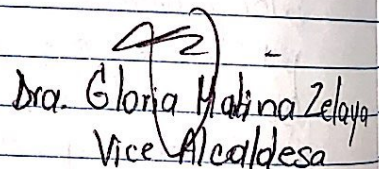 Dra. Gloria Malina Zelaya
Vice Alcaldesa